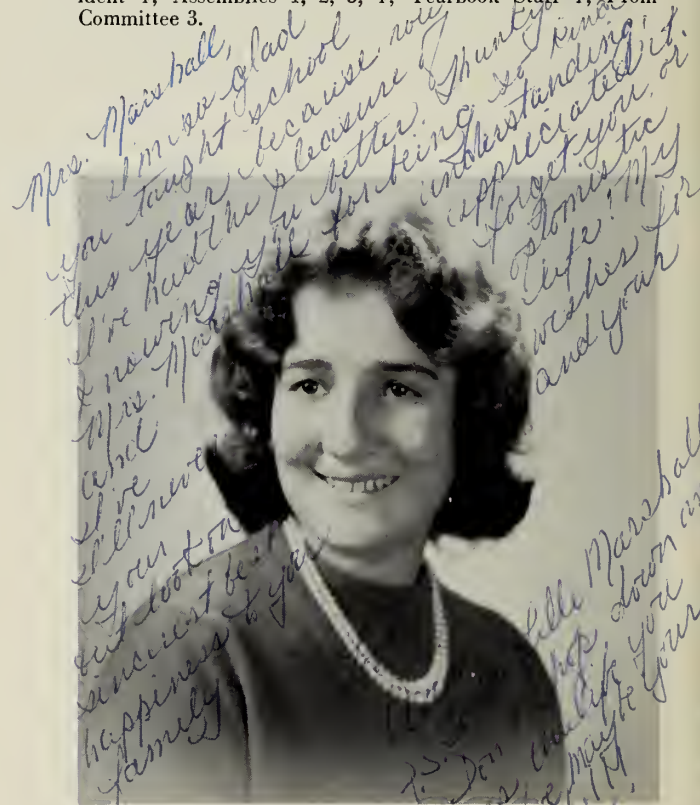 ident 4, Assemblies 1, 2, 3, 4, Yearbook Staff 4, Prom
Committee 3.
Mrs. Marshall,
I'm so glad
you taught school
this year because now
I've had the pleasure of
knowing you better.
Mrs. Marshall for being so kind
and understanding.
I've appreciated it.
I'll never forget you or
your optomistic
out look on life! My
sincerest best wishes for
happiness to you and your
family
P.S. Don
Marshall
down
like you
maybe your